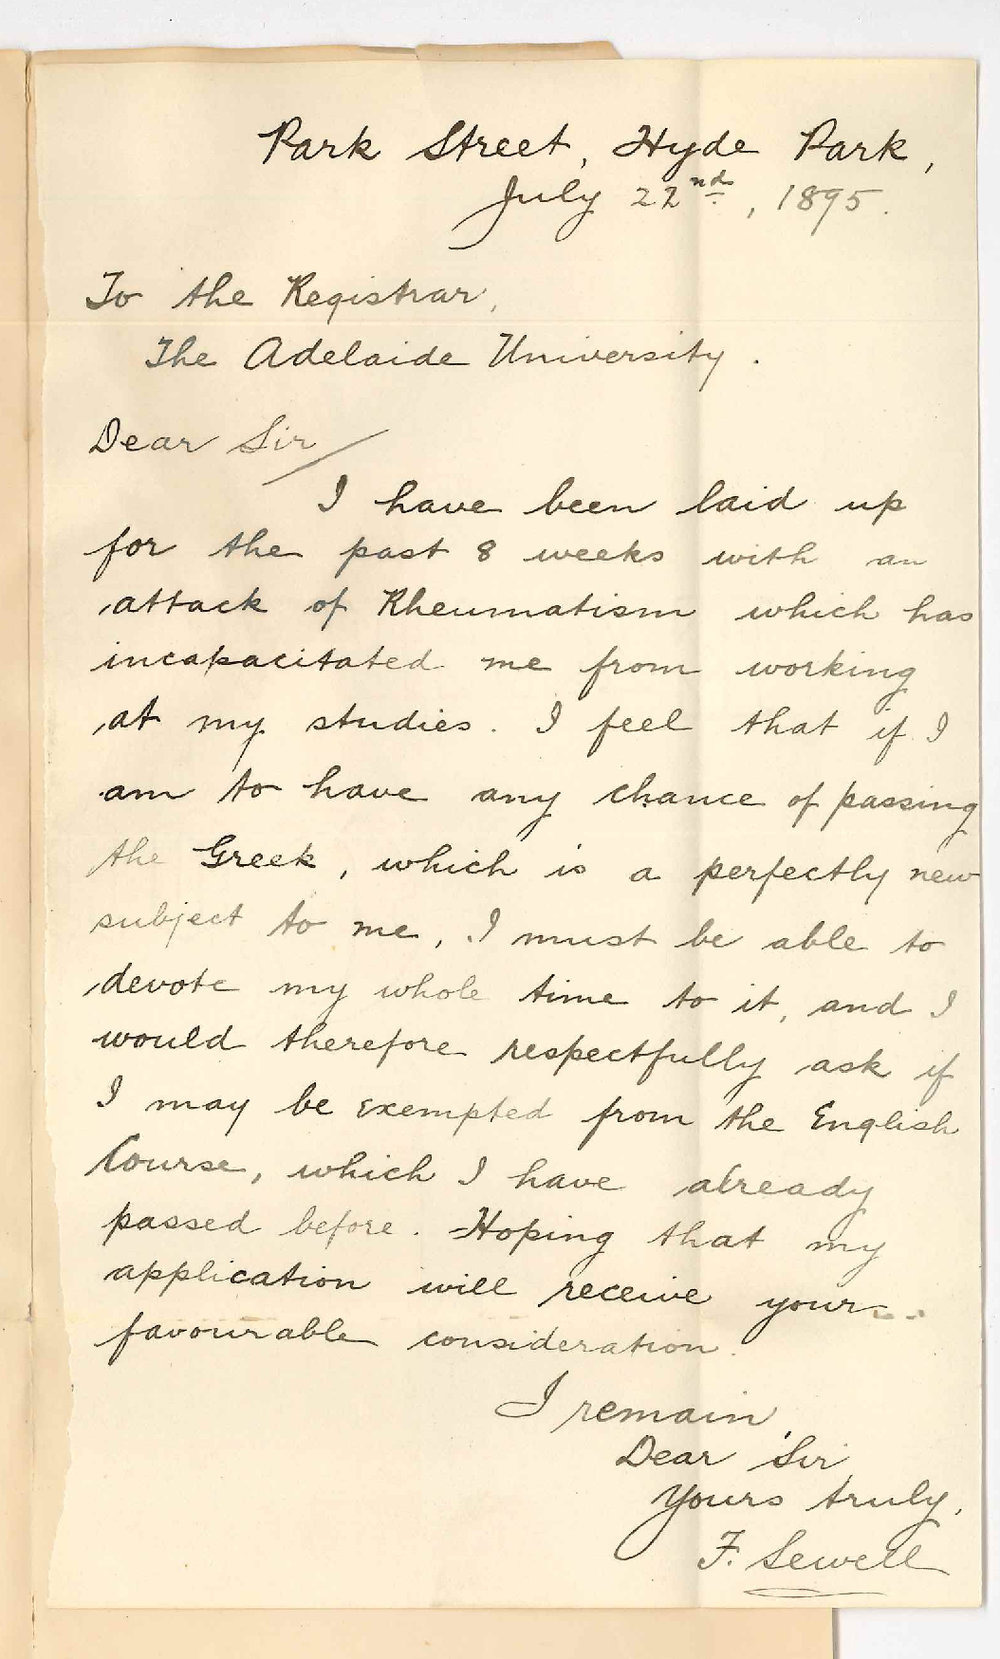 Park Street, Hyde Park,
July 22nd, 1895.
To the Registrar,
The Adelaide University.
Dear Sir/
I have been laid up
for the past 8 weeks with an
attack of Rheumatism which has
incapacitated me from working
at my studies. I feel that if I
am to have any chance of passing
the Greek, which is a perfectly new
subject to me, I must be able to
devote my whole time to it, and I
would therefore respectfully ask if
I may be exempted from the English
Course, which I have already
passed before. Hoping that my
application will receive your
favourable consideration.
I remain,
Dear Sir,
Yours truly,
F. Sewell